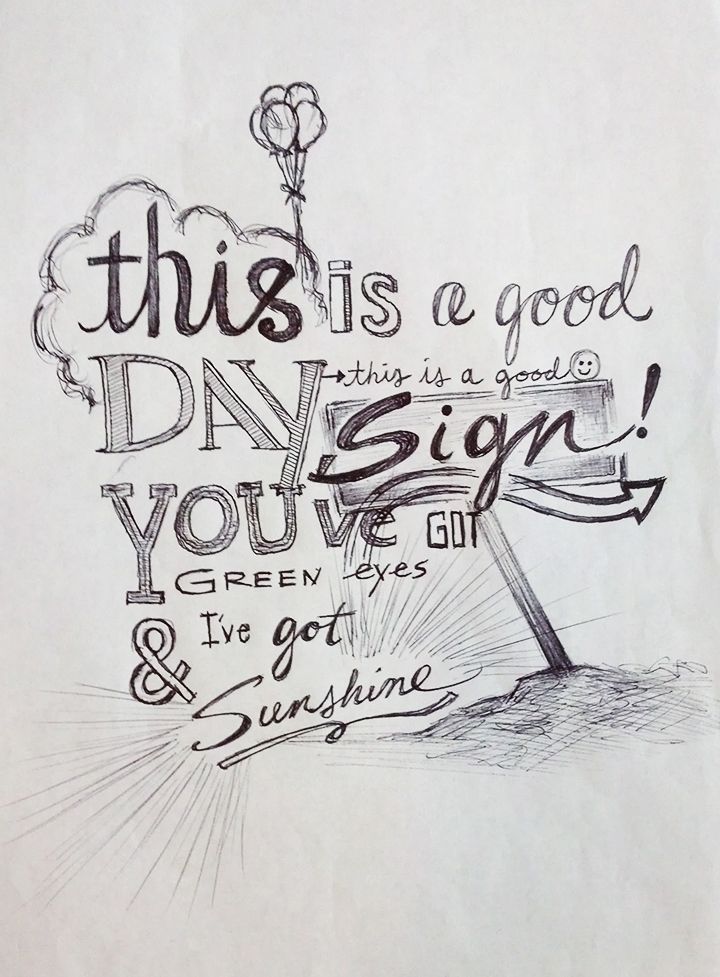 this is a good
DAY this is a good
Sign!
YOU've GOT
GREEN eyes
& I've got
Sunshine